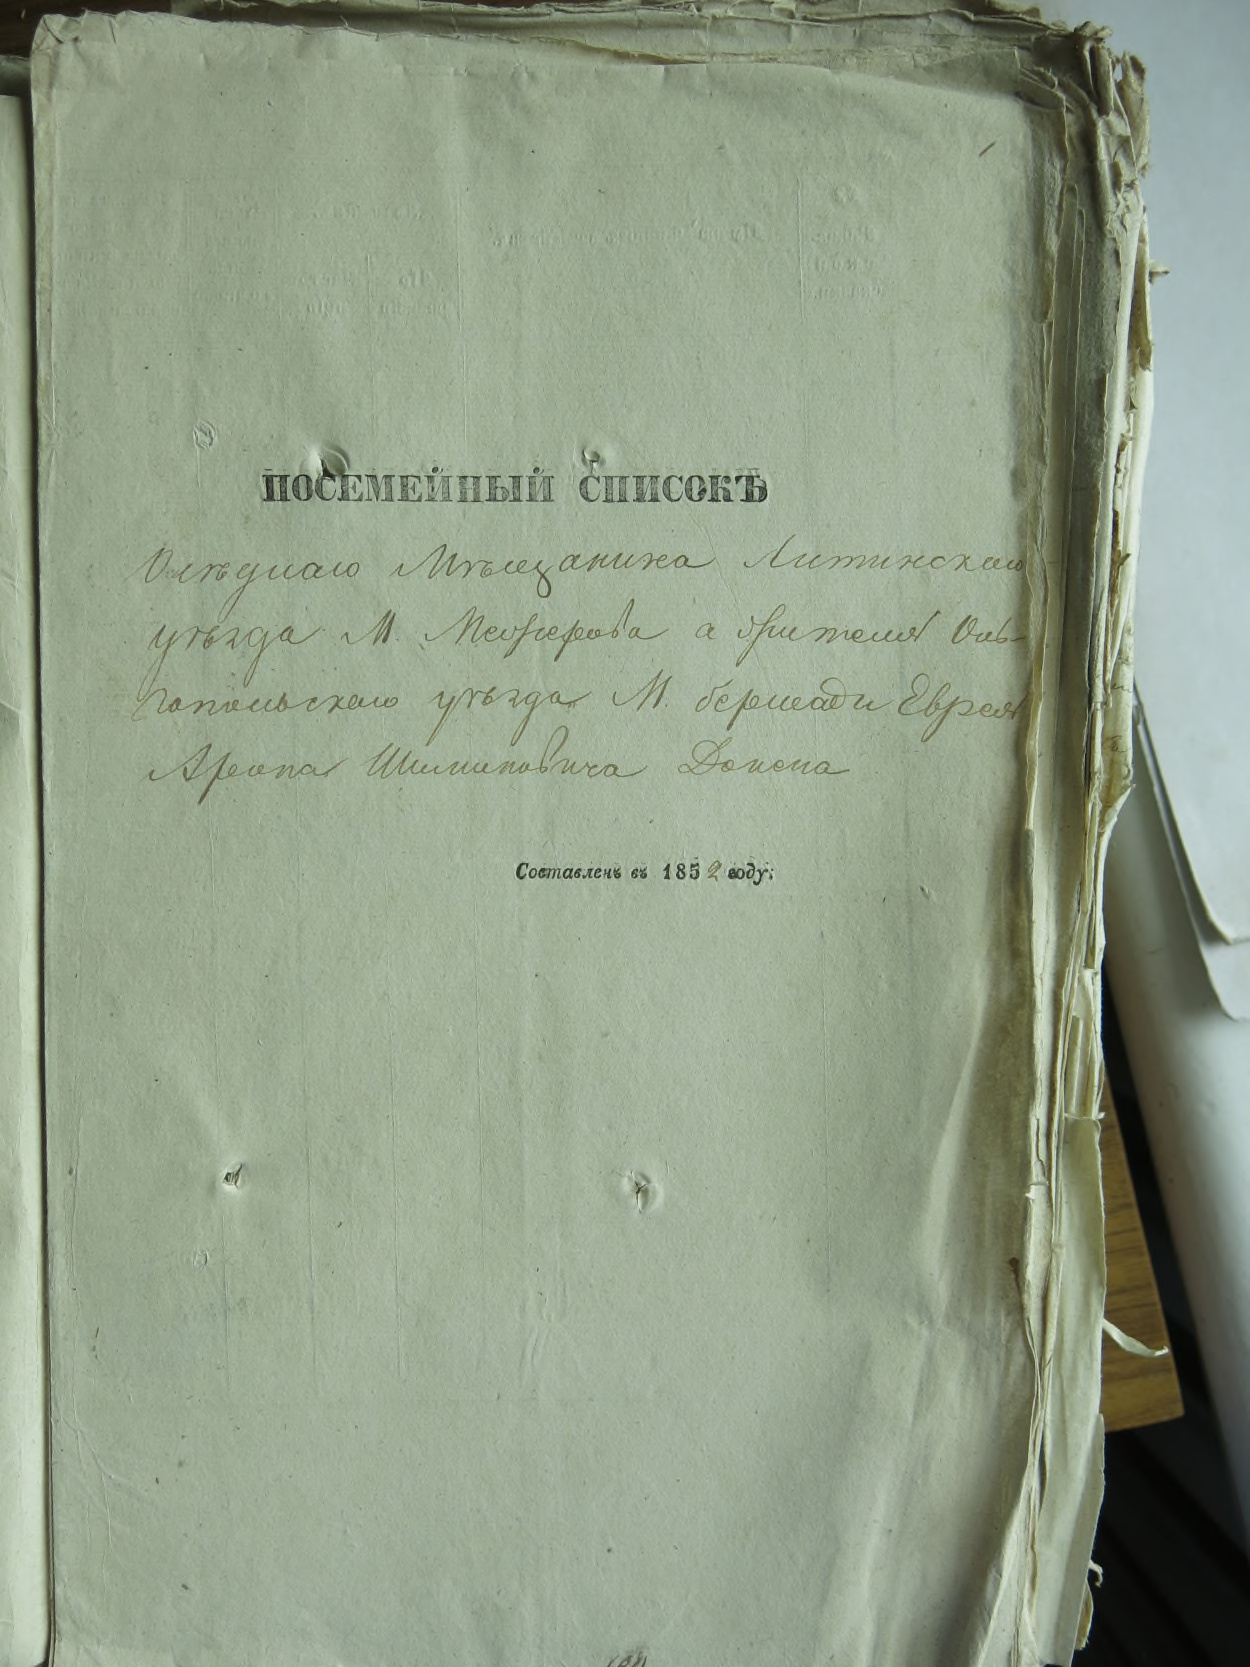 ПОСЕМЕЙНЫЙ СПИСОКЪ
Осѣдлаго Мѣщанина Литинскаго
уѣзда М. Межерова а жителя Оль-
гопольскаго уѣзда М. бершади Еврея
Арона Шимановича
Составленъ въ 1852 году: